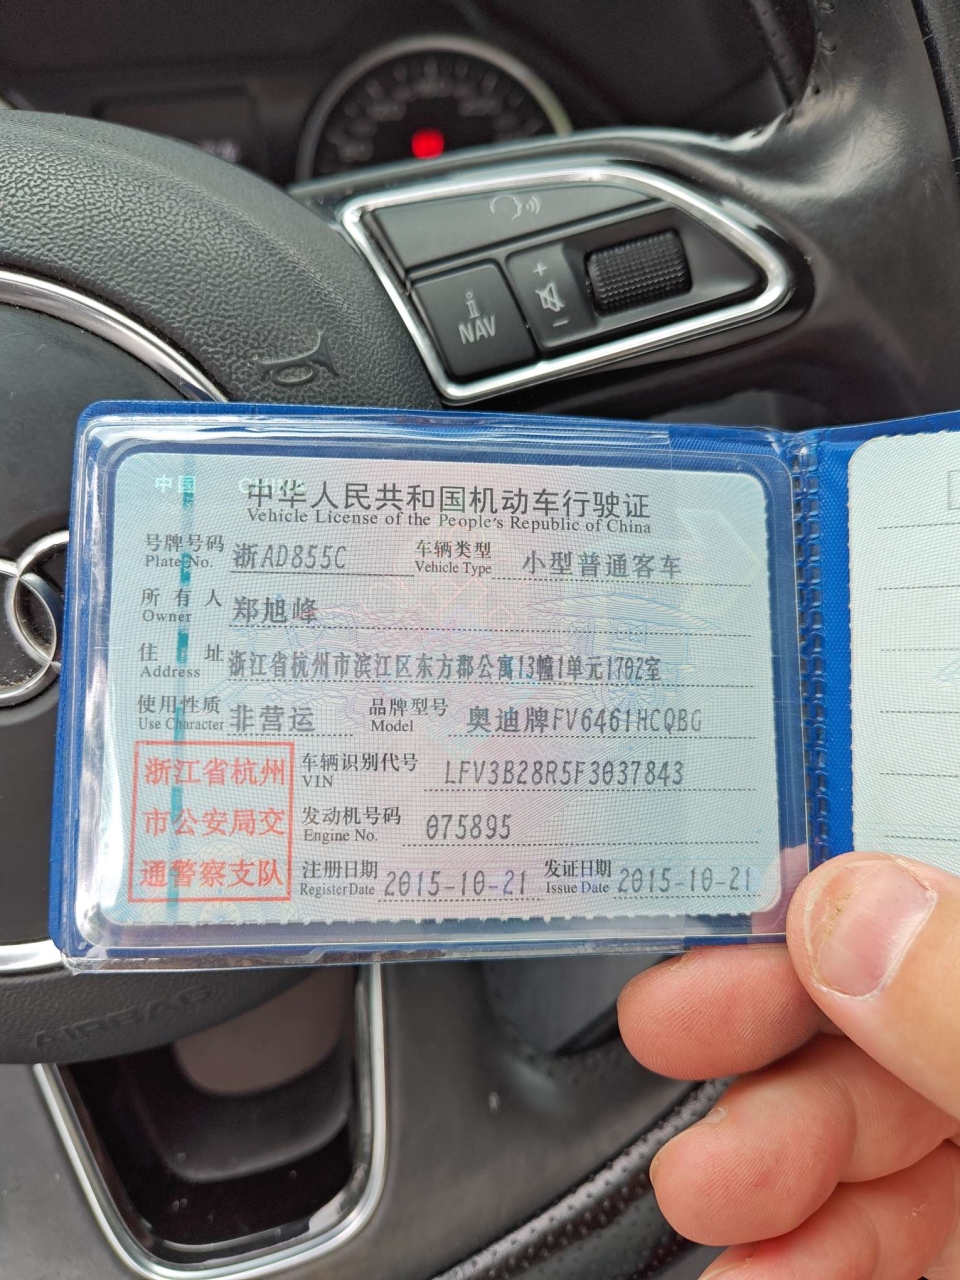 NAV
中国 CHINA
中华人民共和国机动车行驶证
Vehicle License of the People's Republic of China
号牌号码 浙AD855C 车辆类型 小型普通客车
Plate No. Vehicle Type
所有人 郑旭峰
Owner
住址 浙江省杭州市滨江区东方郡公寓13幢1单元1702室
Address
使用性质 非营运 品牌型号 奥迪牌FV6461HCQBG
Use Character Model
浙江省杭州
市公安局交
通警察支队
车辆识别代号 LFV3B28R5F3037843
VIN
发动机号码 075895
Engine No.
注册日期 2015-10-21 发证日期 2015-10-21
Register Date Issue Date
AIRBAG